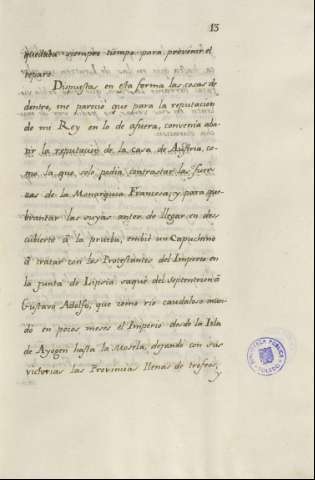 13
quedaba siempre tiempo para prevenir el
reparo.
Dispuestas en esta forma las cosas de
dentro, me pareció que para la reputacion
de mi Rey en lo de afuera, convenia aba-
tir la reputacion de la casa de Austria, co-
mo la que solo podia contrastar las fuer-
zas de la Monarquia Francesa; y para que-
brantar las suyas antes de llegar en des-
cubierto á la prueba, embié un Capuchino
á tratar con los Protestantes del Imperio en
la junta de Lipsia: saqué del septentrion á
Gustavo Adolfo, que como rio caudaloso inun-
dó en pocos meses el Imperio desde la Isla
de Aysgen hasta la Mosela, dejando con sus
victorias las Provincias llenas de trofeos, y
BIBLIOTECA PUBLICA
TOLEDO